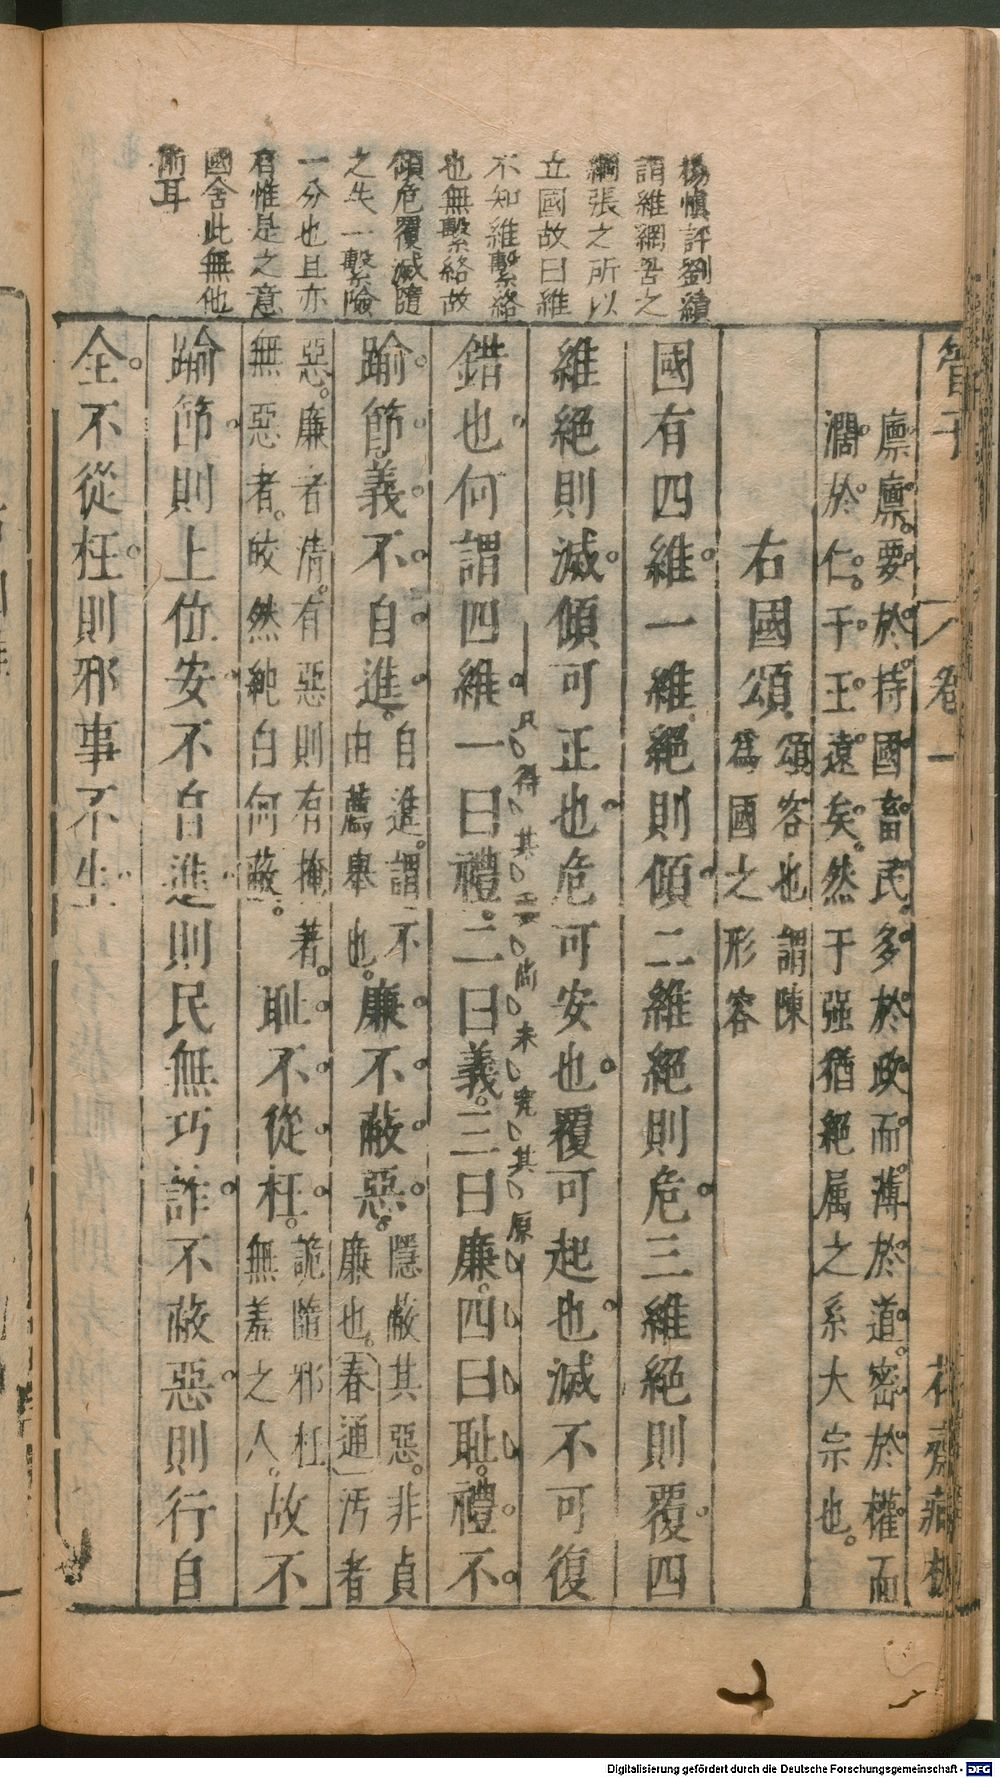 楊慎評劉績
謂維網罟之
綱張之所以
立國故曰維
不知維繫絡
也無繫絡故
傾危覆滅隨
之失一繫險
一分也且亦
有惟是之意
國舍此無他
術耳
管子 卷一 花齋藏板
廪廪要於持國畜民多於政而薄於道密於權而
濶於仁于王遠矣然于强猶絕属之系大宗也
右國頌 頌容也謂陳
為國之形容
國有四維一維絕則傾二維絕則危三維絕則覆四
維絕則滅傾可正也危可安也覆可起也滅不可復
只得其一要尚未究其原
錯也何謂四維一曰禮二曰義三曰廉四曰耻禮不
踰節義不自進 自進謂不
由薦舉也 廉不蔽惡 隱蔽其惡非貞
廉也(春通)汚者
惡廉者清有惡則有掩著
無惡者皎然純白何蔽 耻不從枉 詭隨邪枉
無羞之人 故不
踰節則上位安不自進則民無巧詐不蔽惡則行自
全不從枉則邪事不生
Digitalisierung gefördert durch die Deutsche Forschungsgemeinschaft - DFG